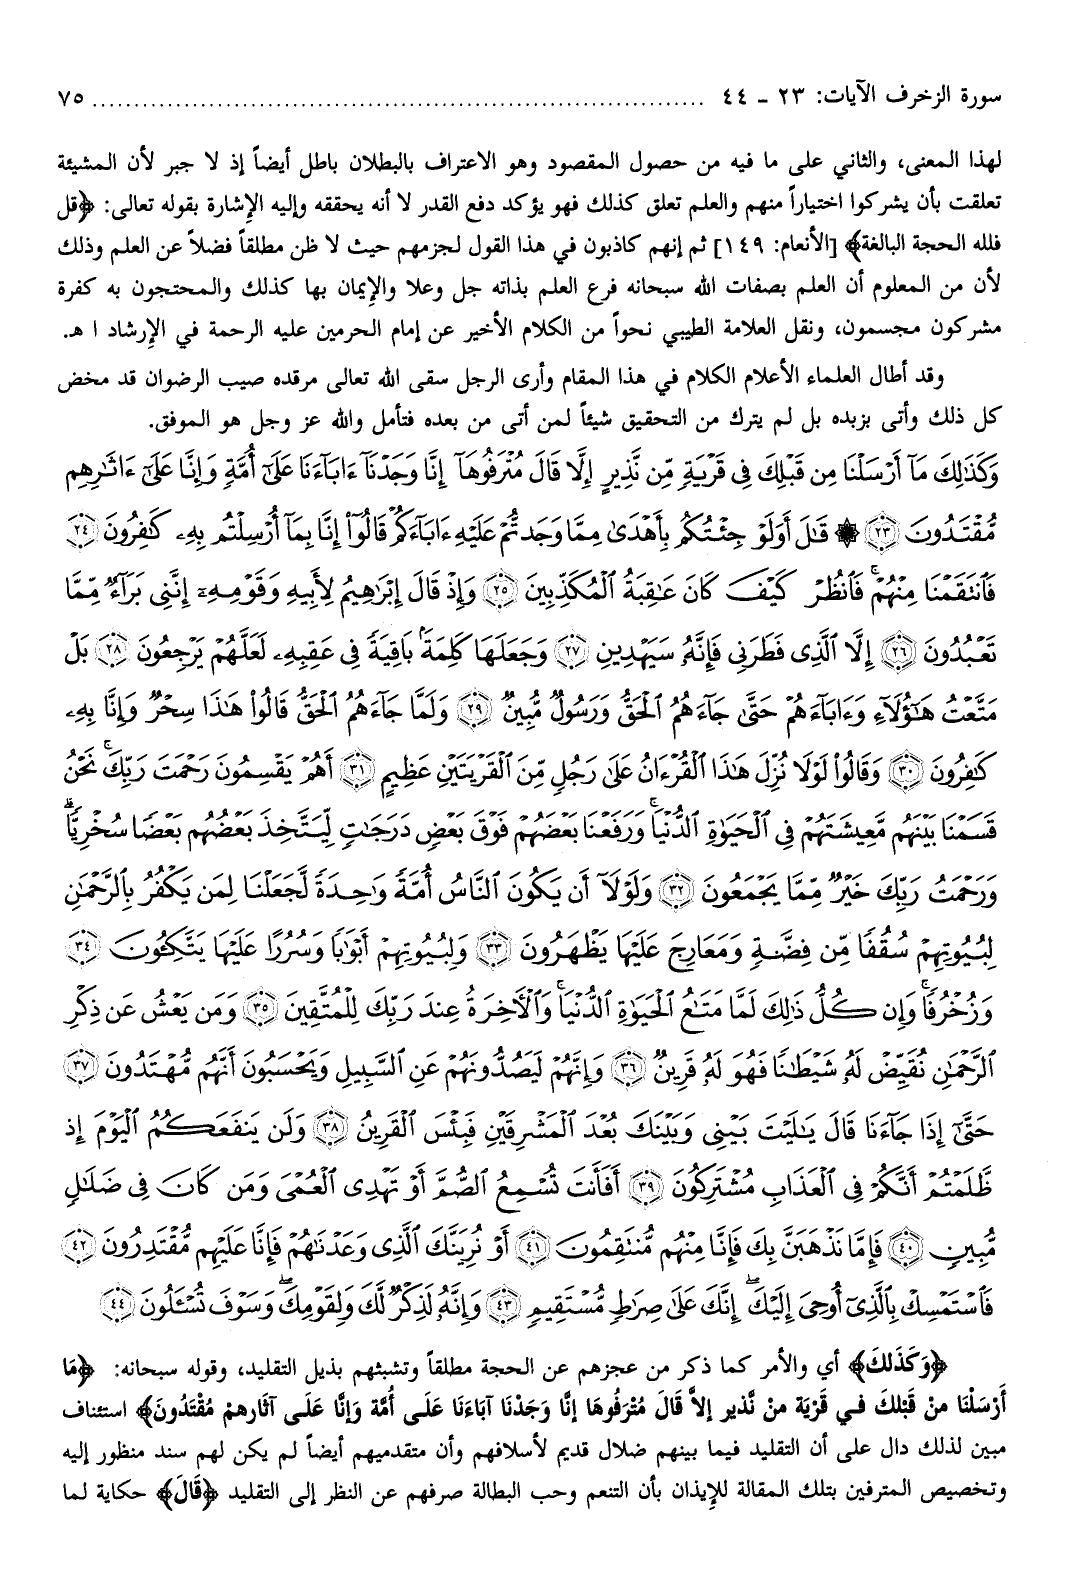 سورة الزخرف الآيات: ٢٣ - ٤٤ ........................................................................ ٧٥
لهذا المعنى، والثاني على ما فيه من حصول المقصود وهو الاعتراف بالبطلان باطل أيضاً إذ لا جبر لأن المشيئة
تعلقت بأن يشركوا اختياراً منهم والعلم تعلق كذلك فهو يؤكد دفع القدر لا أنه يحققه وإليه الإشارة بقوله تعالى: ﴿قل
فلله الحجة البالغة﴾ [الأنعام: ١٤٩] ثم إنهم كاذبون في هذا القول لجزمهم حيث لا ظن مطلقاً فضلاً عن العلم وذلك
لأن من المعلوم أن العلم بصفات الله سبحانه فرع العلم بذاته جل وعلا والإيمان بها كذلك والمحتجون به كفرة
مشركون مجسمون، ونقل العلامة الطيبي نحواً من الكلام الأخير عن إمام الحرمين عليه الرحمة في الإرشاد ا هـ.
وقد أطال العلماء الأعلام الكلام في هذا المقام وأرى الرجل سقى الله تعالى مرقده صيب الرضوان قد مخض
كل ذلك وأتى بزبده بل لم يترك من التحقيق شيئاً لمن أتى من بعده فتأمل والله عز وجل هو الموفق.
وَكَذَٰلِكَ مَآ أَرْسَلْنَا مِن قَبْلِكَ فِى قَرْيَةٍ مِّن نَّذِيرٍ إِلَّا قَالَ مُتْرَفُوهَآ إِنَّا وَجَدْنَآ ءَابَآءَنَا عَلَىٰٓ أُمَّةٍ وَإِنَّا عَلَىٰٓ ءَاثَٰرِهِم
مُّقْتَدُونَ ﴿٢٣﴾ ۞ قَٰلَ أَوَلَوْ جِئْتُكُم بِأَهْدَىٰ مِمَّا وَجَدتُّمْ عَلَيْهِ ءَابَآءَكُمْ قَالُوٓا۟ إِنَّا بِمَآ أُرْسِلْتُم بِهِۦ كَٰفِرُونَ ﴿٢٤﴾
فَٱنتَقَمْنَا مِنْهُمْ ۖ فَٱنظُرْ كَيْفَ كَانَ عَٰقِبَةُ ٱلْمُكَذِّبِينَ ﴿٢٥﴾ وَإِذْ قَالَ إِبْرَٰهِيمُ لِأَبِيهِ وَقَوْمِهِۦٓ إِنَّنِى بَرَآءٌ مِّمَّا
تَعْبُدُونَ ﴿٢٦﴾ إِلَّا ٱلَّذِى فَطَرَنِى فَإِنَّهُۥ سَيَهْدِينِ ﴿٢٧﴾ وَجَعَلَهَا كَلِمَةًۢ بَاقِيَةً فِى عَقِبِهِۦ لَعَلَّهُمْ يَرْجِعُونَ ﴿٢٨﴾ بَلْ
مَتَّعْتُ هَٰٓؤُلَآءِ وَءَابَآءَهُمْ حَتَّىٰ جَآءَهُمُ ٱلْحَقُّ وَرَسُولٌ مُّبِينٌ ﴿٢٩﴾ وَلَمَّا جَآءَهُمُ ٱلْحَقُّ قَالُوا۟ هَٰذَا سِحْرٌ وَإِنَّا بِهِۦ
كَٰفِرُونَ ﴿٣٠﴾ وَقَالُوا۟ لَوْلَا نُزِّلَ هَٰذَا ٱلْقُرْءَانُ عَلَىٰ رَجُلٍ مِّنَ ٱلْقَرْيَتَيْنِ عَظِيمٍ ﴿٣١﴾ أَهُمْ يَقْسِمُونَ رَحْمَتَ رَبِّكَ ۚ نَحْنُ
قَسَمْنَا بَيْنَهُم مَّعِيشَتَهُمْ فِى ٱلْحَيَوٰةِ ٱلدُّنْيَا ۚ وَرَفَعْنَا بَعْضَهُمْ فَوْقَ بَعْضٍ دَرَجَٰتٍ لِّيَتَّخِذَ بَعْضُهُم بَعْضًا سُخْرِيًّا ۗ
وَرَحْمَتُ رَبِّكَ خَيْرٌ مِّمَّا يَجْمَعُونَ ﴿٣٢﴾ وَلَوْلَآ أَن يَكُونَ ٱلنَّاسُ أُمَّةً وَٰحِدَةً لَّجَعَلْنَا لِمَن يَكْفُرُ بِٱلرَّحْمَٰنِ
لِبُيُوتِهِمْ سُقُفًا مِّن فِضَّةٍ وَمَعَارِجَ عَلَيْهَا يَظْهَرُونَ ﴿٣٣﴾ وَلِبُيُوتِهِمْ أَبْوَٰبًا وَسُرُرًا عَلَيْهَا يَتَّكِـُٔونَ ﴿٣٤﴾
وَزُخْرُفًا ۚ وَإِن كُلُّ ذَٰلِكَ لَمَّا مَتَٰعُ ٱلْحَيَوٰةِ ٱلدُّنْيَا ۚ وَٱلْءَاخِرَةُ عِندَ رَبِّكَ لِلْمُتَّقِينَ ﴿٣٥﴾ وَمَن يَعْشُ عَن ذِكْرِ
ٱلرَّحْمَٰنِ نُقَيِّضْ لَهُۥ شَيْطَٰنًا فَهُوَ لَهُۥ قَرِينٌ ﴿٣٦﴾ وَإِنَّهُمْ لَيَصُدُّونَهُمْ عَنِ ٱلسَّبِيلِ وَيَحْسَبُونَ أَنَّهُم مُّهْتَدُونَ ﴿٣٧﴾
حَتَّىٰٓ إِذَا جَآءَنَا قَالَ يَٰلَيْتَ بَيْنِى وَبَيْنَكَ بُعْدَ ٱلْمَشْرِقَيْنِ فَبِئْسَ ٱلْقَرِينُ ﴿٣٨﴾ وَلَن يَنفَعَكُمُ ٱلْيَوْمَ إِذ
ظَّلَمْتُمْ أَنَّكُمْ فِى ٱلْعَذَابِ مُشْتَرِكُونَ ﴿٣٩﴾ أَفَأَنتَ تُسْمِعُ ٱلصُّمَّ أَوْ تَهْدِى ٱلْعُمْىَ وَمَن كَانَ فِى ضَلَٰلٍ
مُّبِينٍ ﴿٤٠﴾ فَإِمَّا نَذْهَبَنَّ بِكَ فَإِنَّا مِنْهُم مُّنتَقِمُونَ ﴿٤١﴾ أَوْ نُرِيَنَّكَ ٱلَّذِى وَعَدْنَٰهُمْ فَإِنَّا عَلَيْهِم مُّقْتَدِرُونَ ﴿٤٢﴾
فَٱسْتَمْسِكْ بِٱلَّذِىٓ أُوحِىَ إِلَيْكَ ۖ إِنَّكَ عَلَىٰ صِرَٰطٍ مُّسْتَقِيمٍ ﴿٤٣﴾ وَإِنَّهُۥ لَذِكْرٌ لَّكَ وَلِقَوْمِكَ ۖ وَسَوْفَ تُسْـَٔلُونَ ﴿٤٤﴾
﴿وَكَذَلِكَ﴾ أي والأمر كما ذكر من عجزهم عن الحجة مطلقاً وتشبثهم بذيل التقليد، وقوله سبحانه: ﴿مَا
أَرْسَلْنَا مِنْ قَبْلِكَ فِي قَرْيَة مِنْ نَّذير إلاَّ قَالَ مُتْرَفُوهَا إنَّا وَجَدْنَا آبَاءَنَا عَلَى أُمَّة وَإنَّا عَلَى آثَارِهمْ مُقْتَدُونَ﴾ استئناف
مبين لذلك دال على أن التقليد فيما بينهم ضلال قديم لأسلافهم وأن متقدميهم أيضاً لم يكن لهم سند منظور إليه
وتخصيص المترفين بتلك المقالة للإيذان بأن التنعم وحب البطالة صرفهم عن النظر إلى التقليد ﴿قَالَ﴾ حكاية لما